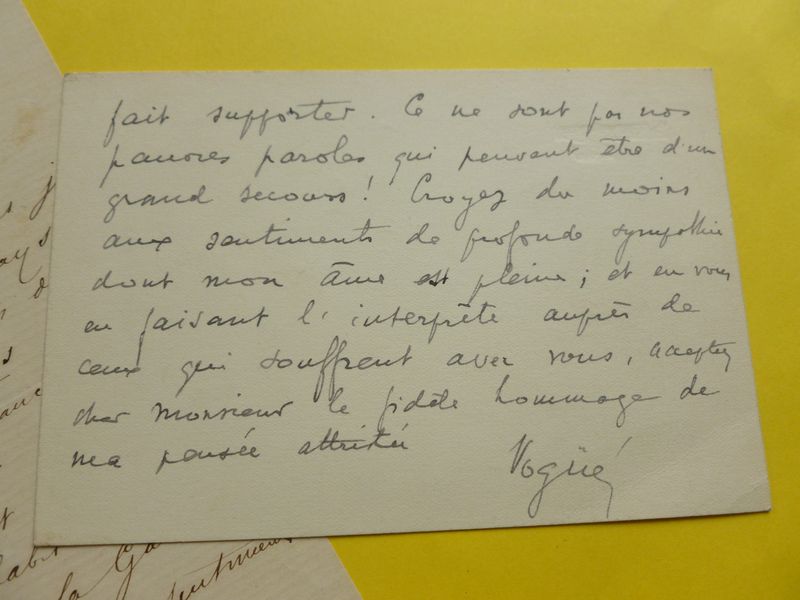 fait supporter. Ce ne sont pas nos
pauvres paroles qui peuvent être d'un
grand secours! Croyez du moins
aux sentiments de profonde sympathie
dont mon âme est pleine; et en vous
en faisant l'interprète auprès de
ceux qui souffrent avec vous, acceptez
cher Monsieur le fidèle hommage de
ma pensée attristée
Vogüé
la Ga